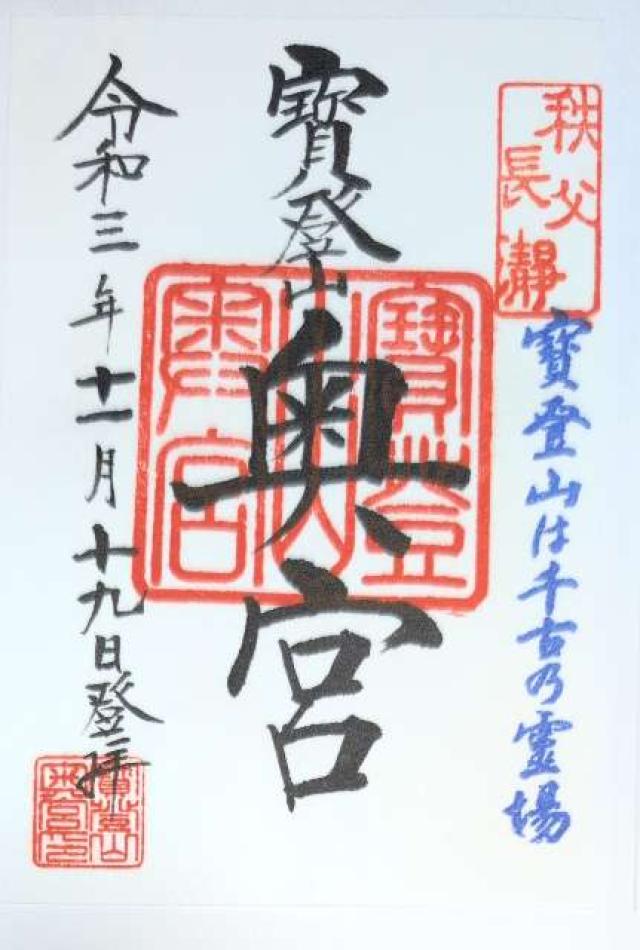 秩父
長瀞
寶登山は千古乃霊場
寶登山
奥宮
寶登山奥宮
令和三年十一月十九日登拝
寶登山
奥宮印